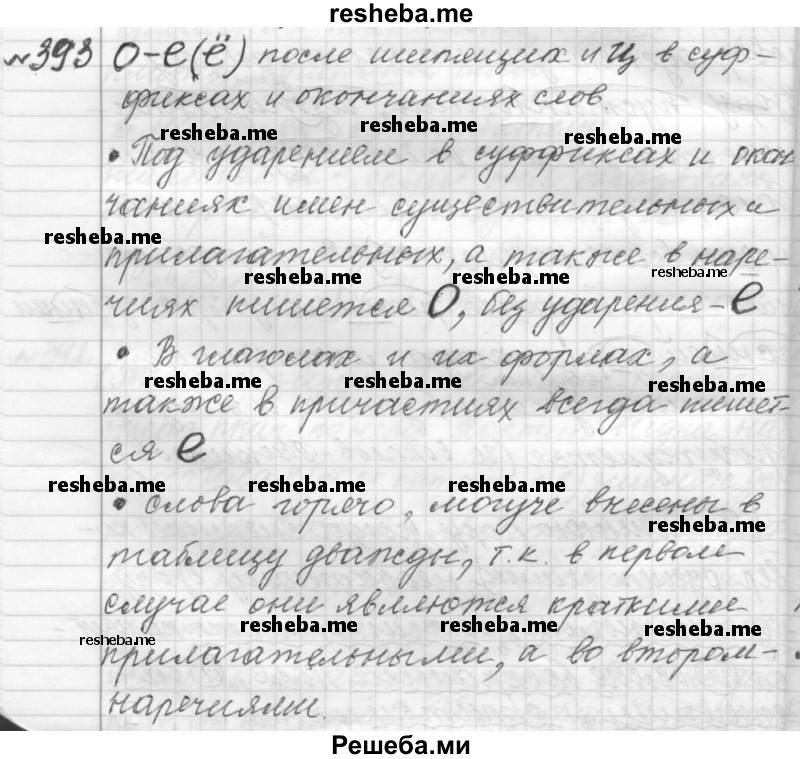 resheba.me
№393 О-е(ё) после шипящих и ц в суф-
фиксах и окончаниях слов.
resheba.me resheba.me resheba.me
• Под ударением в суффиксах и окон
чаниях имен существительных и
resheba.me
прилагательных, а также в наре-
resheba.me resheba.me resheba.me
чиях пишется О, без ударения - е
• В глаголах и их формах, а
resheba.me resheba.me resheba.me
также в причастиях всегда пишет-
ся е
resheba.me resheba.me resheba.me
• Слова горячо, могуче внесены в
resheba.me
таблицу дважды, т.к. в первом
случае они являются краткими
resheba.me resheba.me resheba.me resheba.me
прилагательными, а во втором -
наречиями.
Решеба.ми